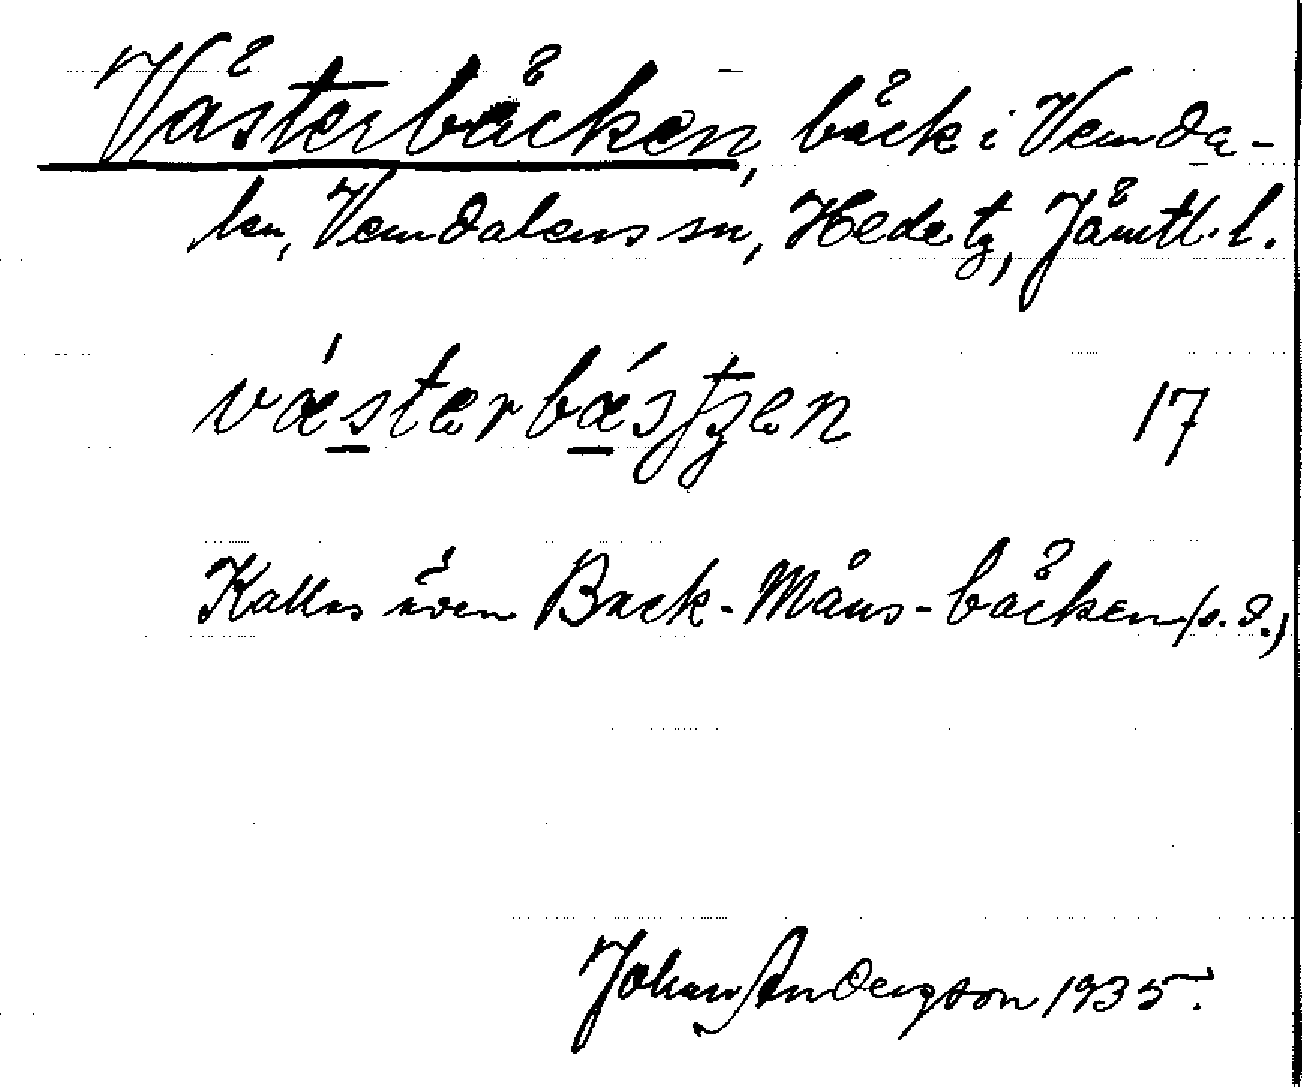 Västerbäcken, bäck i Vemda-
len, Vemdalens sn, Hede tg, Jämtl. l.
væ̀sterbæ̀sʃʒen 17
Kallas även Back-Måns-bäcken (s. d.)
Johan Andergson 1935.